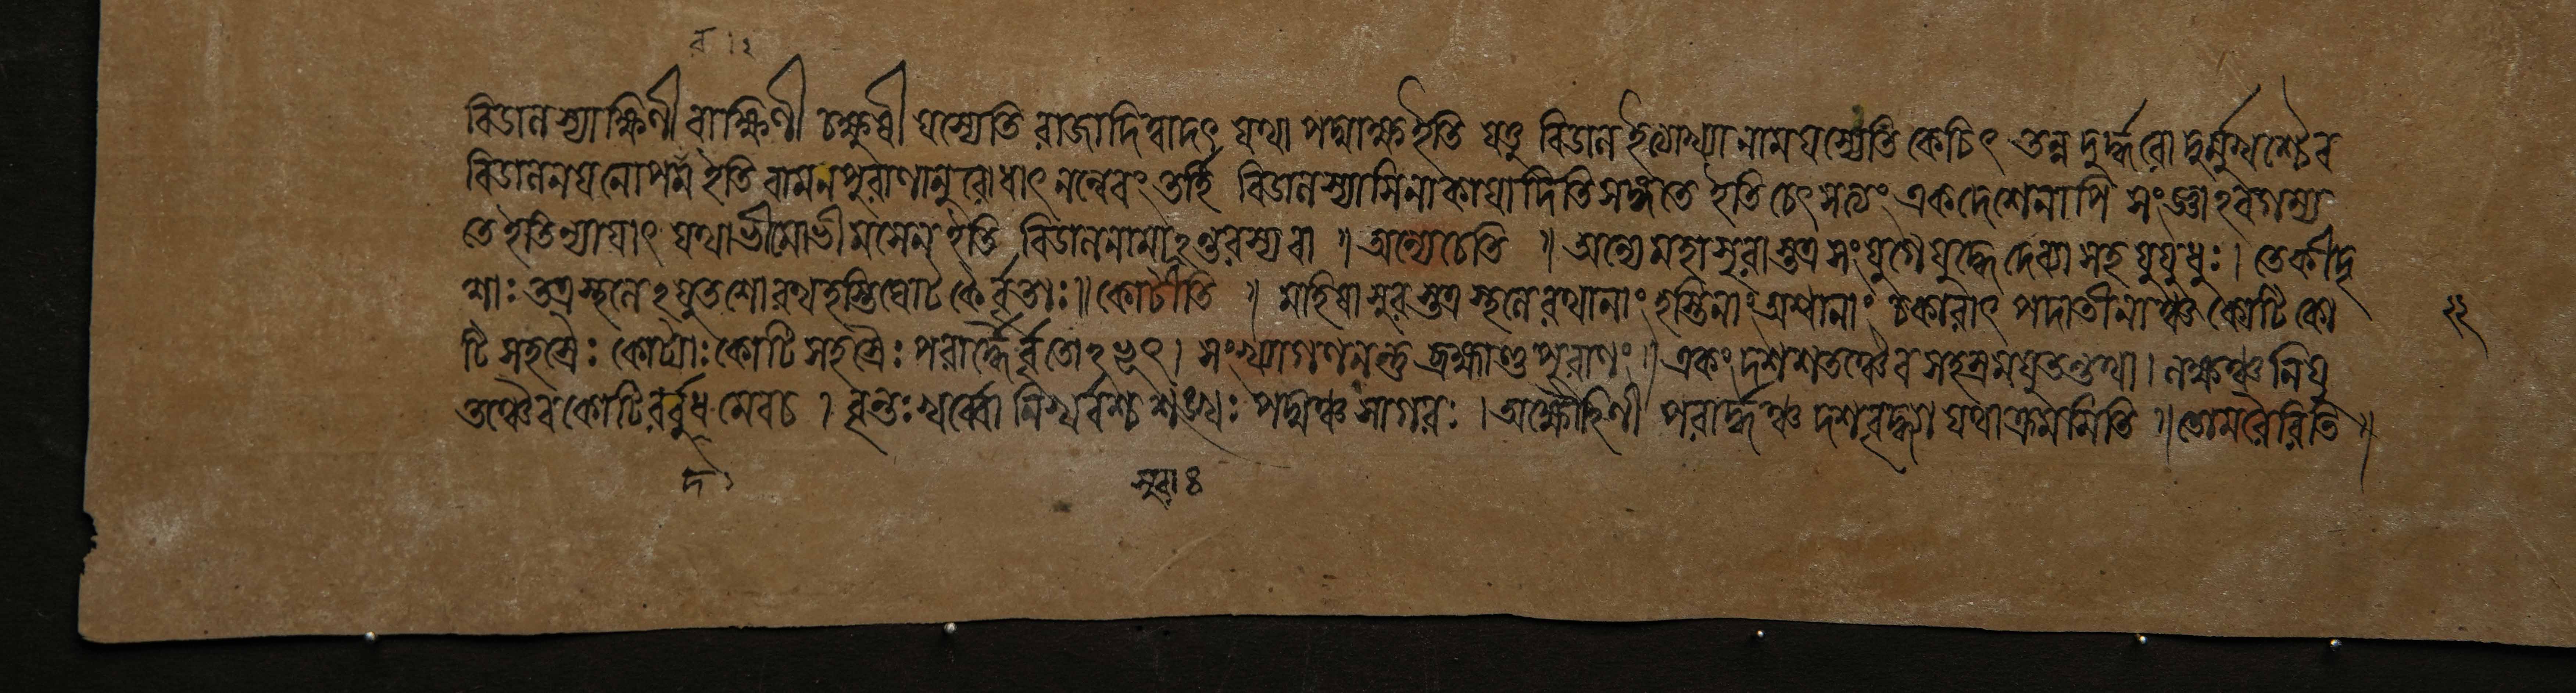 ব ৷ ২
বিডালস্যাক্ষিণী বাক্ষিণী চক্ষুষী যস্যেতি রাজাদিত্বাদৎ যথা পদ্মাক্ষ ইতি যত্তু বিডাল ইত্যাখ্যা নাম যস্যেতি কেচিৎ তন্ন দুর্দ্ধরো দুর্ম্মুখশ্চৈব
বিডালনয়নোপম ইতি বামনপুরাণানুরোধাৎ নন্বেবং তর্হি বিডালস্যাসিনা কায়াদিতি সঙ্গতে ইতি চেৎ সত্যং একদেশেনাপি সংজ্ঞাঽবগম্য
তে ইতি ন্যায়াৎ যথা ভীমো ভীমসেন ইতি বিডালনামাঽন্তরস্য বা ॥ অন্যেচেতি ॥ অন্যে মহাসুরাস্তত্র সংযুগে যুদ্ধে দেব্যা সহ যুযুধুঃ । তে কীদৃ
শাঃ তত্রস্থলেঽযুতশো রথহস্তিঘোটকৈর্বৃতাঃ ॥ কোটীতি ॥ মাহিষাসুরস্তত্রস্থলে রথানাং হস্তিনাং অশ্বানাং চকারাৎ পদাতীনাঞ্চ কোটি কো
২২
টি সহস্রৈঃ কোট্যাঃ কোটি সহস্রৈঃ পরার্দ্ধৈর্বৃতোঽভূৎ । সংখ্যাগণনন্তু ব্রহ্মাণ্ড পুরাণং ॥ একং দশ শতঞ্চৈব সহস্রমযুতন্তথা । লক্ষঞ্চ নিযু
তঞ্চৈব কোটিরর্ব্বুধ মেবচ । বৃন্তঃ খর্ব্বো নিখর্বশ্চ শঙ্খঃ পদ্মঞ্চ সাগরঃ । অক্ষৌহিণী পরার্দ্ধঞ্চ দশবৃদ্ধ্যা যথাক্রমমিতি ॥ তোমরৈরিতি ॥
দ ৷ সুরা ৪